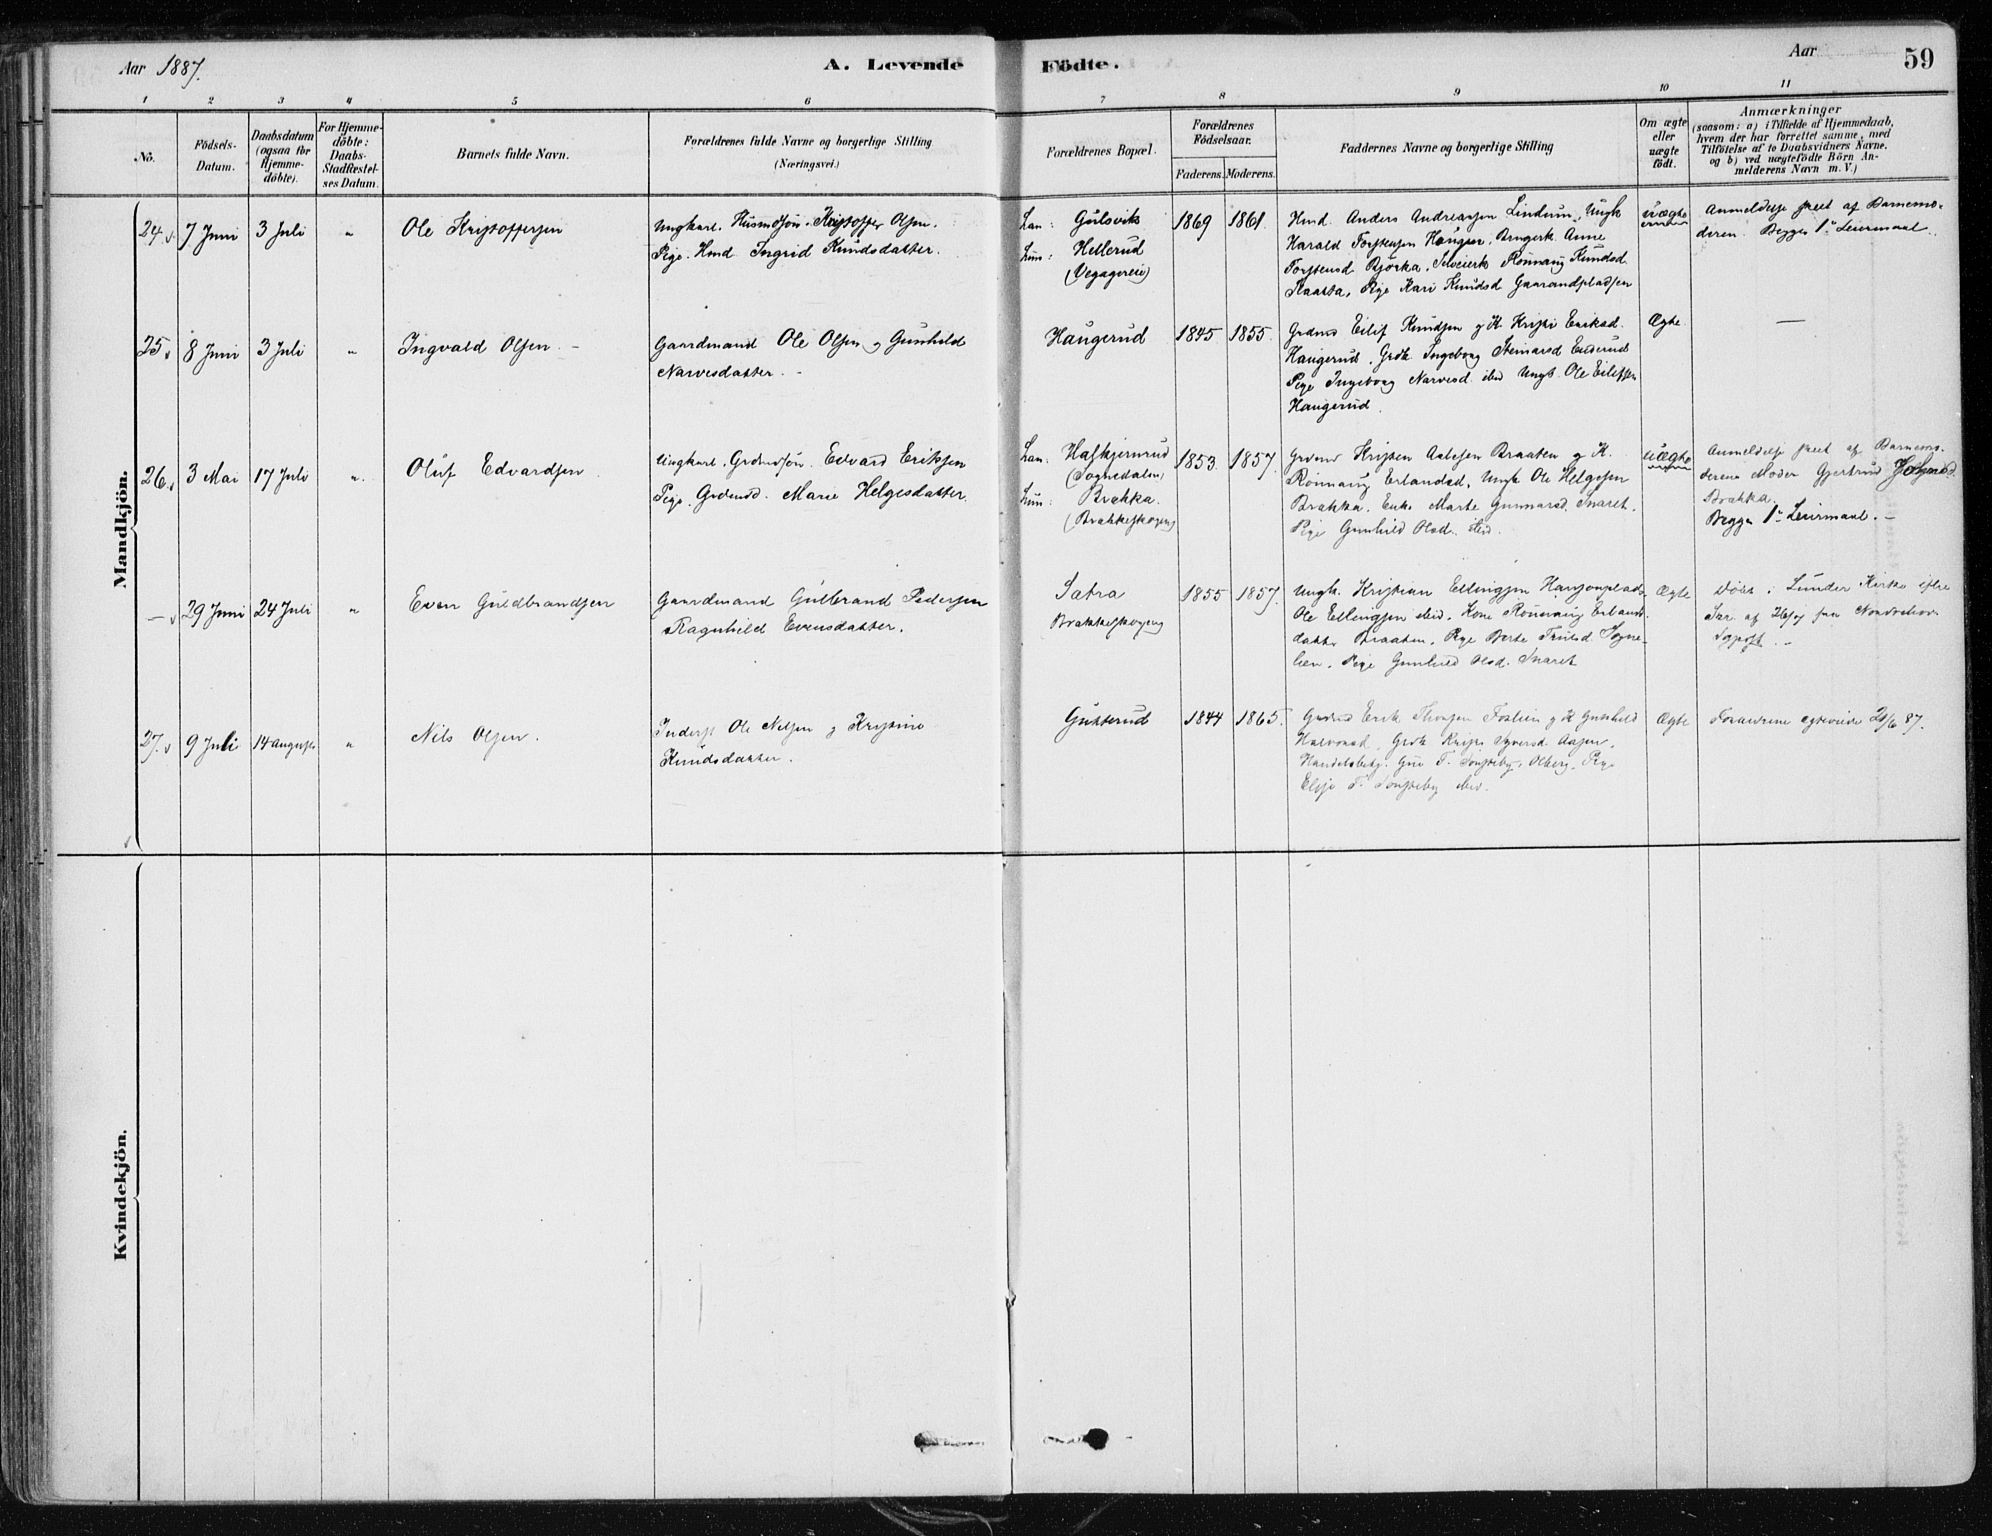 Aar 1887.
A. Levende
Födte.
Aar
59
1 2 3 4 5 6 7 8 9 10 11
No.
Födsels-
Datum.
Daabsdatum
(ogsaa for
Hjemme-
döbte).
For Hjemme-
döbte:
Daabs-
Stadfæstel-
ses Datum.
Barnets fulde Navn.
Forældrenes fulde Navne og borgerlige Stilling
(Næringsvei.)
Forældrenes Bopæl.
Forældrenes
Födselsaar.
Faderens. Moderens.
Faddernes Navne og borgerlige Stilling
Om ægte
eller
uægte
födt.
Anmærkninger
(saasom: a) i Tilfælde af Hjemmedaab,
hvem der har forrettet samme, med
Tilföielse af to Daabsvidners Navne.
og b) ved uægtefödte Börn An-
melderens Navn m. V.)
Mandkjön.
24. 7 Juni 3 Juli "
Ole Kristoffersen
Ungkarl. Husmdsøn. Kristoffer Olsen.
Pige. Hmd Ingrid Knudsdatter.
Han: Gulsvik
Hun: Hellerud
(Vegagereie)
1869 1861.
Hmd. Anders Andreassen Lindrun, Ungk
Harald Torstensen Haugen, Brugerk. Anne
Torstensd Bjørka, Rönnaug Knudsd
Raatta, Pige Kari Knudsd Gaarandpladsen
uægte
Anmeldelse skeet af Barnemo-
deren. Begges 1ste Leiermaal.
25. 8 Juni 3 Juli "
Ingvald Olsen.
Gaardmand Ole Olsen og Gunhild
Narvesdatter.
Haugerud
1845 1855.
Grdmd Eilif Knudsen g K. Kristi Eriksd.
Haugerud, Grdk Ingeborg Steinarsd Enderud
Pige Ingeborg Narvesd. ibid Ungk. Ole Eilifsen
Haugerud.
Ægte.
—
26. 3 Mai 17 Juli "
Oluf Edvardsen
Ungkarl. Grdmdsøn. Edvard Eriksen
Pige. Grdmsd. Marie Helgesdatter.
Han: Halkjernrud
(Soghedalen)
Hun: Brakka
(Brakkeskogen)
1853. 1857.
Grdmd Kristen Aslesen Braaten g K.
Rönnaug Erlandsd, Ungk Ole Helgesen
Brakka. Enke Marte Gunnarsd. Snaret.
Pige Gunhild Olsd. ibid.
uægte
Anmeldelse skeet af Barnemo-
derens Moder Gjertrud
Brakka.
Begges 1ste Leiermaal.
— 29 Juni 24 Juli "
Even Guldbrandsen
Gaardmand Gulbrand Pedersen
Ragnhild Evensdatter.
Sætra
Brakkeskogeng
1855 1857.
Ungk. Kristian Ellingsen
Ole Ellingsen ibid. Kone Rönnaug Erlands-
datter Braaten, Pige Berte Truls. Sogne-
lien. Pige Gunhild Olsd. Snaret
Ægte
Döbt i Lunder Kirke efter
af 26/7 fra
27. 9 Juli 14 August "
Nils Olsen.
Inderst Ole Nilsen og Kristine
Knudsdatter.
Gutterud
1844 1865.
Grdmd Erik Thorsen Foslien g K Gunhild
Halvorsd, Grdk Kristi Syversd. Aasen,
Handelsbetj. Gus T. Tonsteby, Olberg, Pige
Elise T. Tonsteby ibid.
Ægte
Forældrene egteviede 21/6 87.
Kvindekjön.